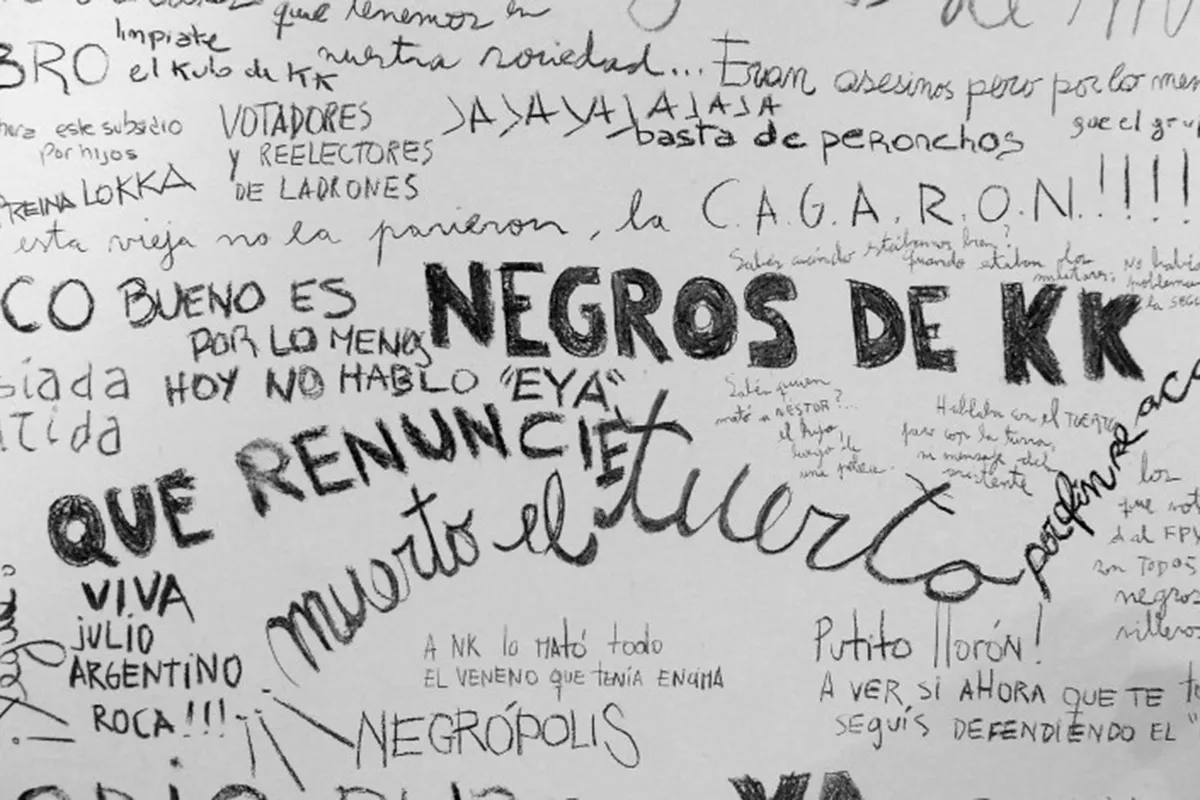 que tenemos en
BRO limpiate
el Kulo de KK
nuestra sociedad... Eran asesinos pero por lo men
este subsidio
Por hijos
REINA LOKKA
VOTADORES
Y REELECTORES
DE LADRONES
JAJAJAJAJAJA
basta de peronchos
que el gru
esta vieja no la parieron, la C.A.G.A.R.O.N.!!!!
Sabés cuándo estábamos bien?
cuando estaban los
militares. No había
problemas
CO BUENO ES
POR LO MENOS
HOY NO HABLO "EYA"
NEGROS DE KK
siada
tida
Sabés quien
mató a NÉSTOR?...
el hijo
luego de
una pelea.
Hablaba con el TUERTO
QUE RENUNCIE
muerto el tuerto
por fin
los
que vot
al FPV
son TODOS
negros
villeros
VIVA
JULIO
ARGENTINO
ROCA!!!
A NK lo MATÓ todo
EL VENENO QUE TENÍA ENCIMA
NEGRÓPOLIS
Putito llorón!
A VER SI AHORA QUE TE
SEGUÍS DEFENDIENDO EL "